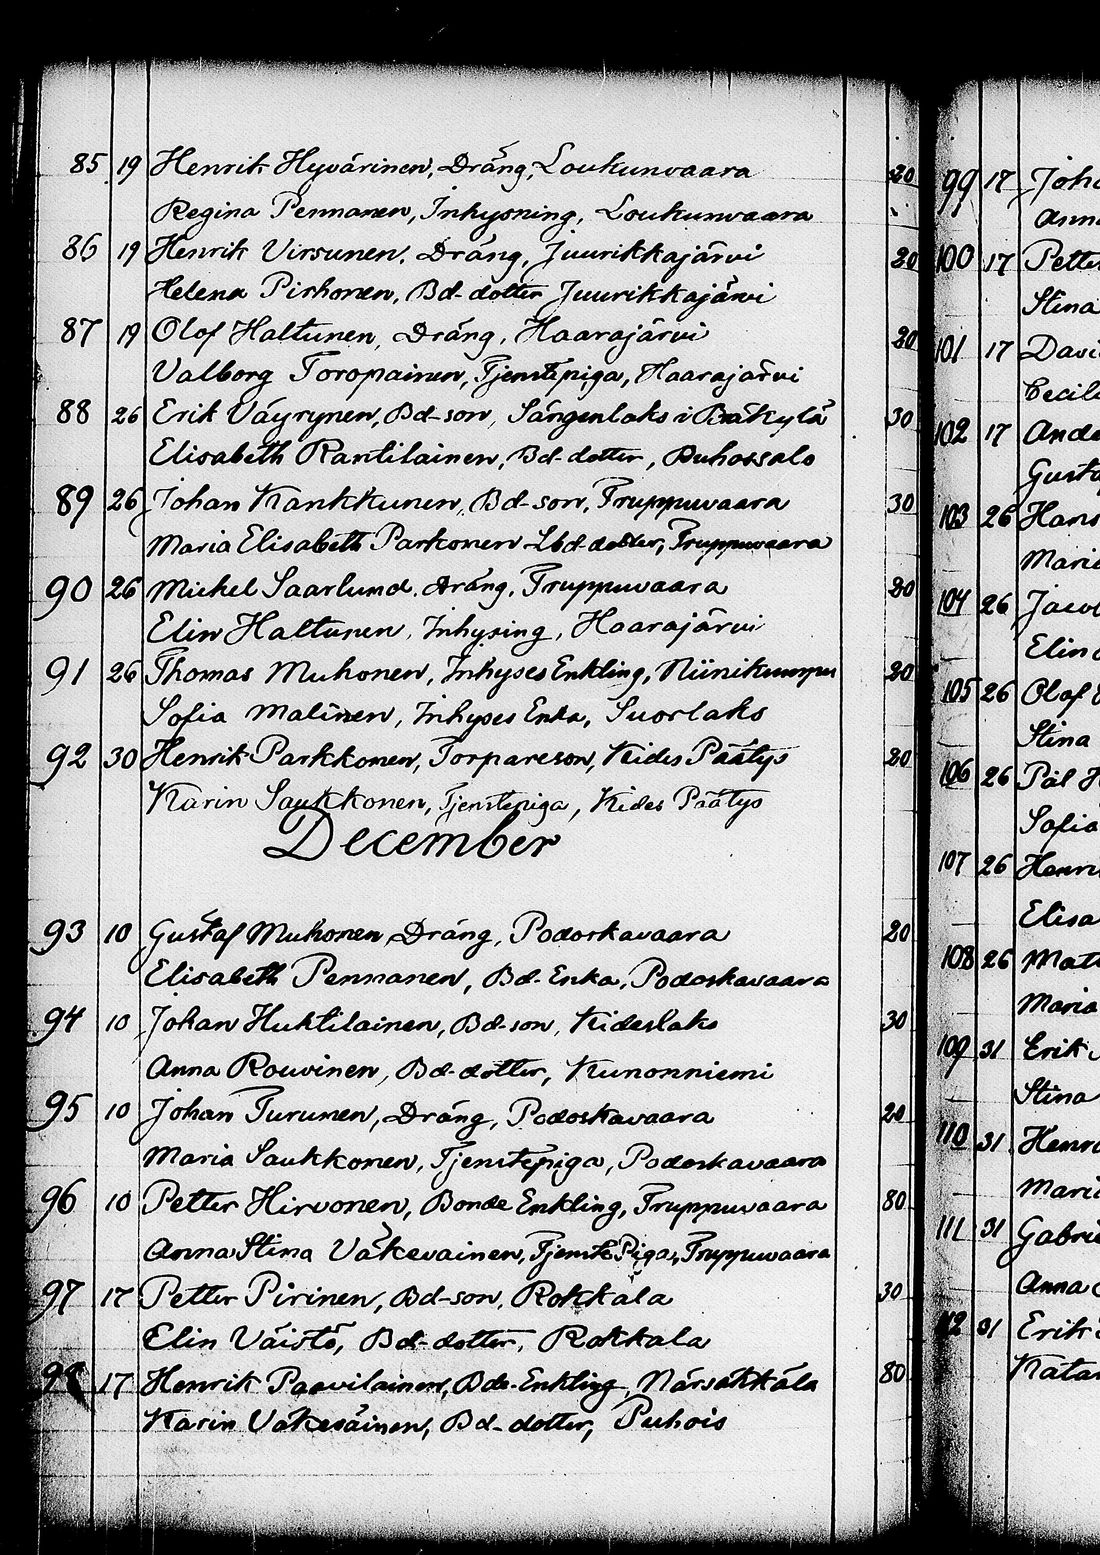 85 19 Henrik Hyvärinen, Dräng, Loukunvaara 20
Regina Pennanen, Inhysning, Loukunvaara
86 19 Henrik Virsunen, Dräng, Juurikkajärvi 20
Helena Pirhonen, Bd-dotter Juurikkajärvi
87 19 Olof Haltunen, Dräng, Haarajärvi 20
Valborg Toropainen, Tjenstepiga, Haarajärvi
88 26 Erik Väyrynen, Bd-son, Sängenlaks i Bräkylä 30
Elisabeth Rantilainen, Bd-dotter, Puhossalo
89 26 Johan Kankkunen, Bd-son, Truppuvaara 30
Maria Elisabeth Parkonen Lbd-dotter, Truppuvaara
90 26 Mickel Saarlund, Dräng, Truppuvaara 20
Elin Haltunen, Inhysing, Haarajärvi
91 26 Thomas Muhonen, Inhyses Enkling, Niinikumpu 20
Sofia Malinen, Inhyses Enka, Suorlaks
92 30 Henrik Parkkonen, Torpareson, Kides Päätys 20
Karin Saukkonen, Tjenstepiga, Kides Päätys
December
93 10 Gustaf Muhonen, Dräng, Podoskavaara 20
Elisabeth Pennanen, Bd-Enka, Podoskavaara
94 10 Johan Huktilainen, Bd-son, Kideslaks 30
Anna Rouvinen, Bd-dotter, Kunonniemi
95 10 Johan Turunen, Dräng, Podoskavaara 20
Maria Saukkonen, Tjenstepiga, Podoskavaara
96 10 Petter Hirvonen, Bonde Enkling, Truppuvaara 80
Anna Stina Väkeväinen, Tjenste Piga, Truppuvaara
97 17 Petter Pirinen, Bd-son, Rokkala 30
Elin Väistö, Bd-dotter, Rokkala
98 17 Henrik Paavilainen, Bde-Enkling, Närsäkkälä 80
Karin Vakeväinen, Bd-dotter, Puhois
99 17 Joha
Anna
100 17 Petter
Stina
101 17 Davi
Cecili
102 17 Ande
Gusta
103 26 Hans
Maria
104 26 Jaco
Elin
105 26 Olof
Stina
106 26 Pål H
Sofia
107 26 Henri
Elisa
108 26 Matt
Maria
109 31 Erik
Stina
110 31 Henri
Maria
111 31 Gabrie
Anna
112 31 Erik
Katar